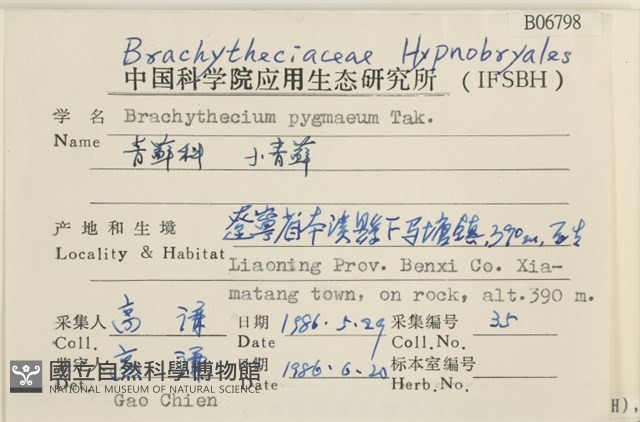 B06798
Brachytheciaceae Hypnobryales
中国科学院应用生态研究所 (IFSBH)
学名 Brachythecium pygmaeum Tak.
Name
青藓科 小青藓
产地和生境 遼寧省本溪縣下马塘镇,390m,石生
Locality & Habitat Liaoning Prov. Benxi Co. Xia-
matang town, on rock, alt.390 m.
采集人 高谦 日期 1986.5.29 采集编号 35
Coll. Date Coll.No.
高谦 日期 1986.6.20 标本室编号
Det Date Herb.No.
國立自然科學博物館
NATIONAL MUSEUM OF NATURAL SCIENCE
Gao Chien
H),